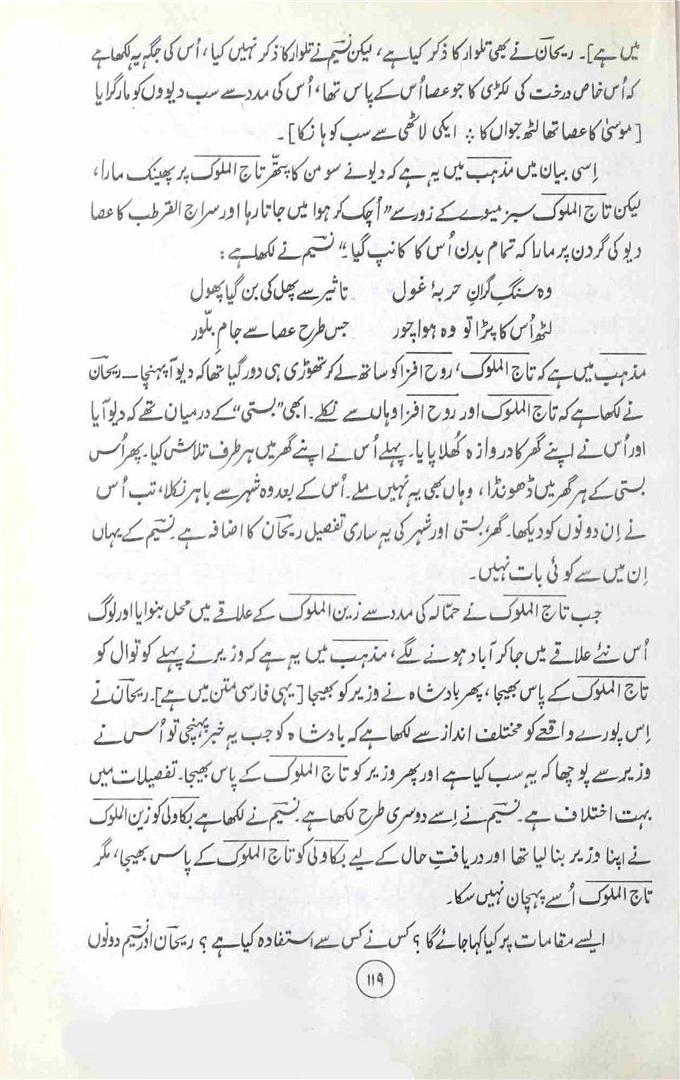 میں ہے]۔ ریحان نے بھی تلوار کا ذکر کیا ہے، لیکن نسیم نے تلوار کا ذکر نہیں کیا، اُس کی جگہ یہ لکھا ہے
کہ اُس خاص درخت کی لکڑی کا جو عصا اُس کے پاس تھا، اُس کی مدد سے سب دیووں کو مار گرایا
[موسیٰ کا عصا تھا لٹھ جواں کا ؞ ایکی لاٹھی سے سب کو ہانکا]۔
اِسی بیان میں مذہب میں یہ ہے کہ دیو نے سو من کا پتھر تاج الملوک پر پھینک مارا،
لیکن تاج الملوک سبز میوے کے زور سے "اُچک کر ہوا میں جاتا رہا اور سراج القرطب کا عصا
دیو کی گردن پر مارا کہ تمام بدن اُس کا کانپ گیا۔" نسیم نے لکھا ہے:
وہ سنگِ گرانِ حربۂ غول تاثیر سے پھل کی بن گیا پھول
لٹھ اُس کا پڑا تو وہ ہوا چور جس طرح عصا سے جامِ بلّور
مذہب میں ہے کہ تاج الملوک، روح افزا کو ساتھ لے کر تھوڑی ہی دور گیا تھا کہ دیو آ پہنچا۔ ریحان
نے لکھا ہے کہ تاج الملوک اور روح افزا وہاں سے نکلے۔ ابھی "بستی" کے درمیان تھے کہ دیو آیا
اور اُس نے اپنے گھر کا دروازہ کُھلا پایا۔ پہلے اُس نے اپنے گھر میں ہر طرف تلاش کیا۔ پھر اُس
بستی کے ہر گھر میں ڈھونڈا، وہاں بھی یہ نہیں ملے۔ اُس کے بعد وہ شہر سے باہر نکلا، تب اُس
نے اِن دونوں کو دیکھا۔ گھر، بستی اور شہر کی یہ ساری تفصیل ریحان کا اضافہ ہے۔ نسیم کے یہاں
اِن میں سے کوئی بات نہیں۔
جب تاج الملوک نے حمّالہ کی مدد سے زین الملوک کے علاقے میں محل بنوایا اور لوگ
اُس نئے علاقے میں جا کر آباد ہونے لگے، مذہب میں یہ ہے کہ وزیر نے پہلے کوتوال کو
تاج الملوک کے پاس بھیجا، پھر بادشاہ نے وزیر کو بھیجا [یہی فارسی متن میں ہے]۔ ریحان نے
اِس پورے واقعے کو مختلف انداز سے لکھا ہے کہ بادشاہ کو جب یہ خبر پہنچی تو اُس نے
وزیر سے پوچھا کہ یہ سب کیا ہے اور پھر وزیر کو تاج الملوک کے پاس بھیجا۔ تفصیلات میں
بہت اختلاف ہے۔ نسیم نے اِسے دوسری طرح لکھا ہے۔ نسیم نے لکھا ہے بکاولی کو زین الملوک
نے اپنا وزیر بنا لیا تھا اور دریافتِ حال کے لیے بکاولی کو تاج الملوک کے پاس بھیجا، مگر
تاج الملوک اُسے پہچان نہیں سکا۔
ایسے مقامات پر کیا کہا جائے گا؟ کس نے کس سے استفادہ کیا ہے؟ ریحان اور نسیم دونوں
۱۱۹